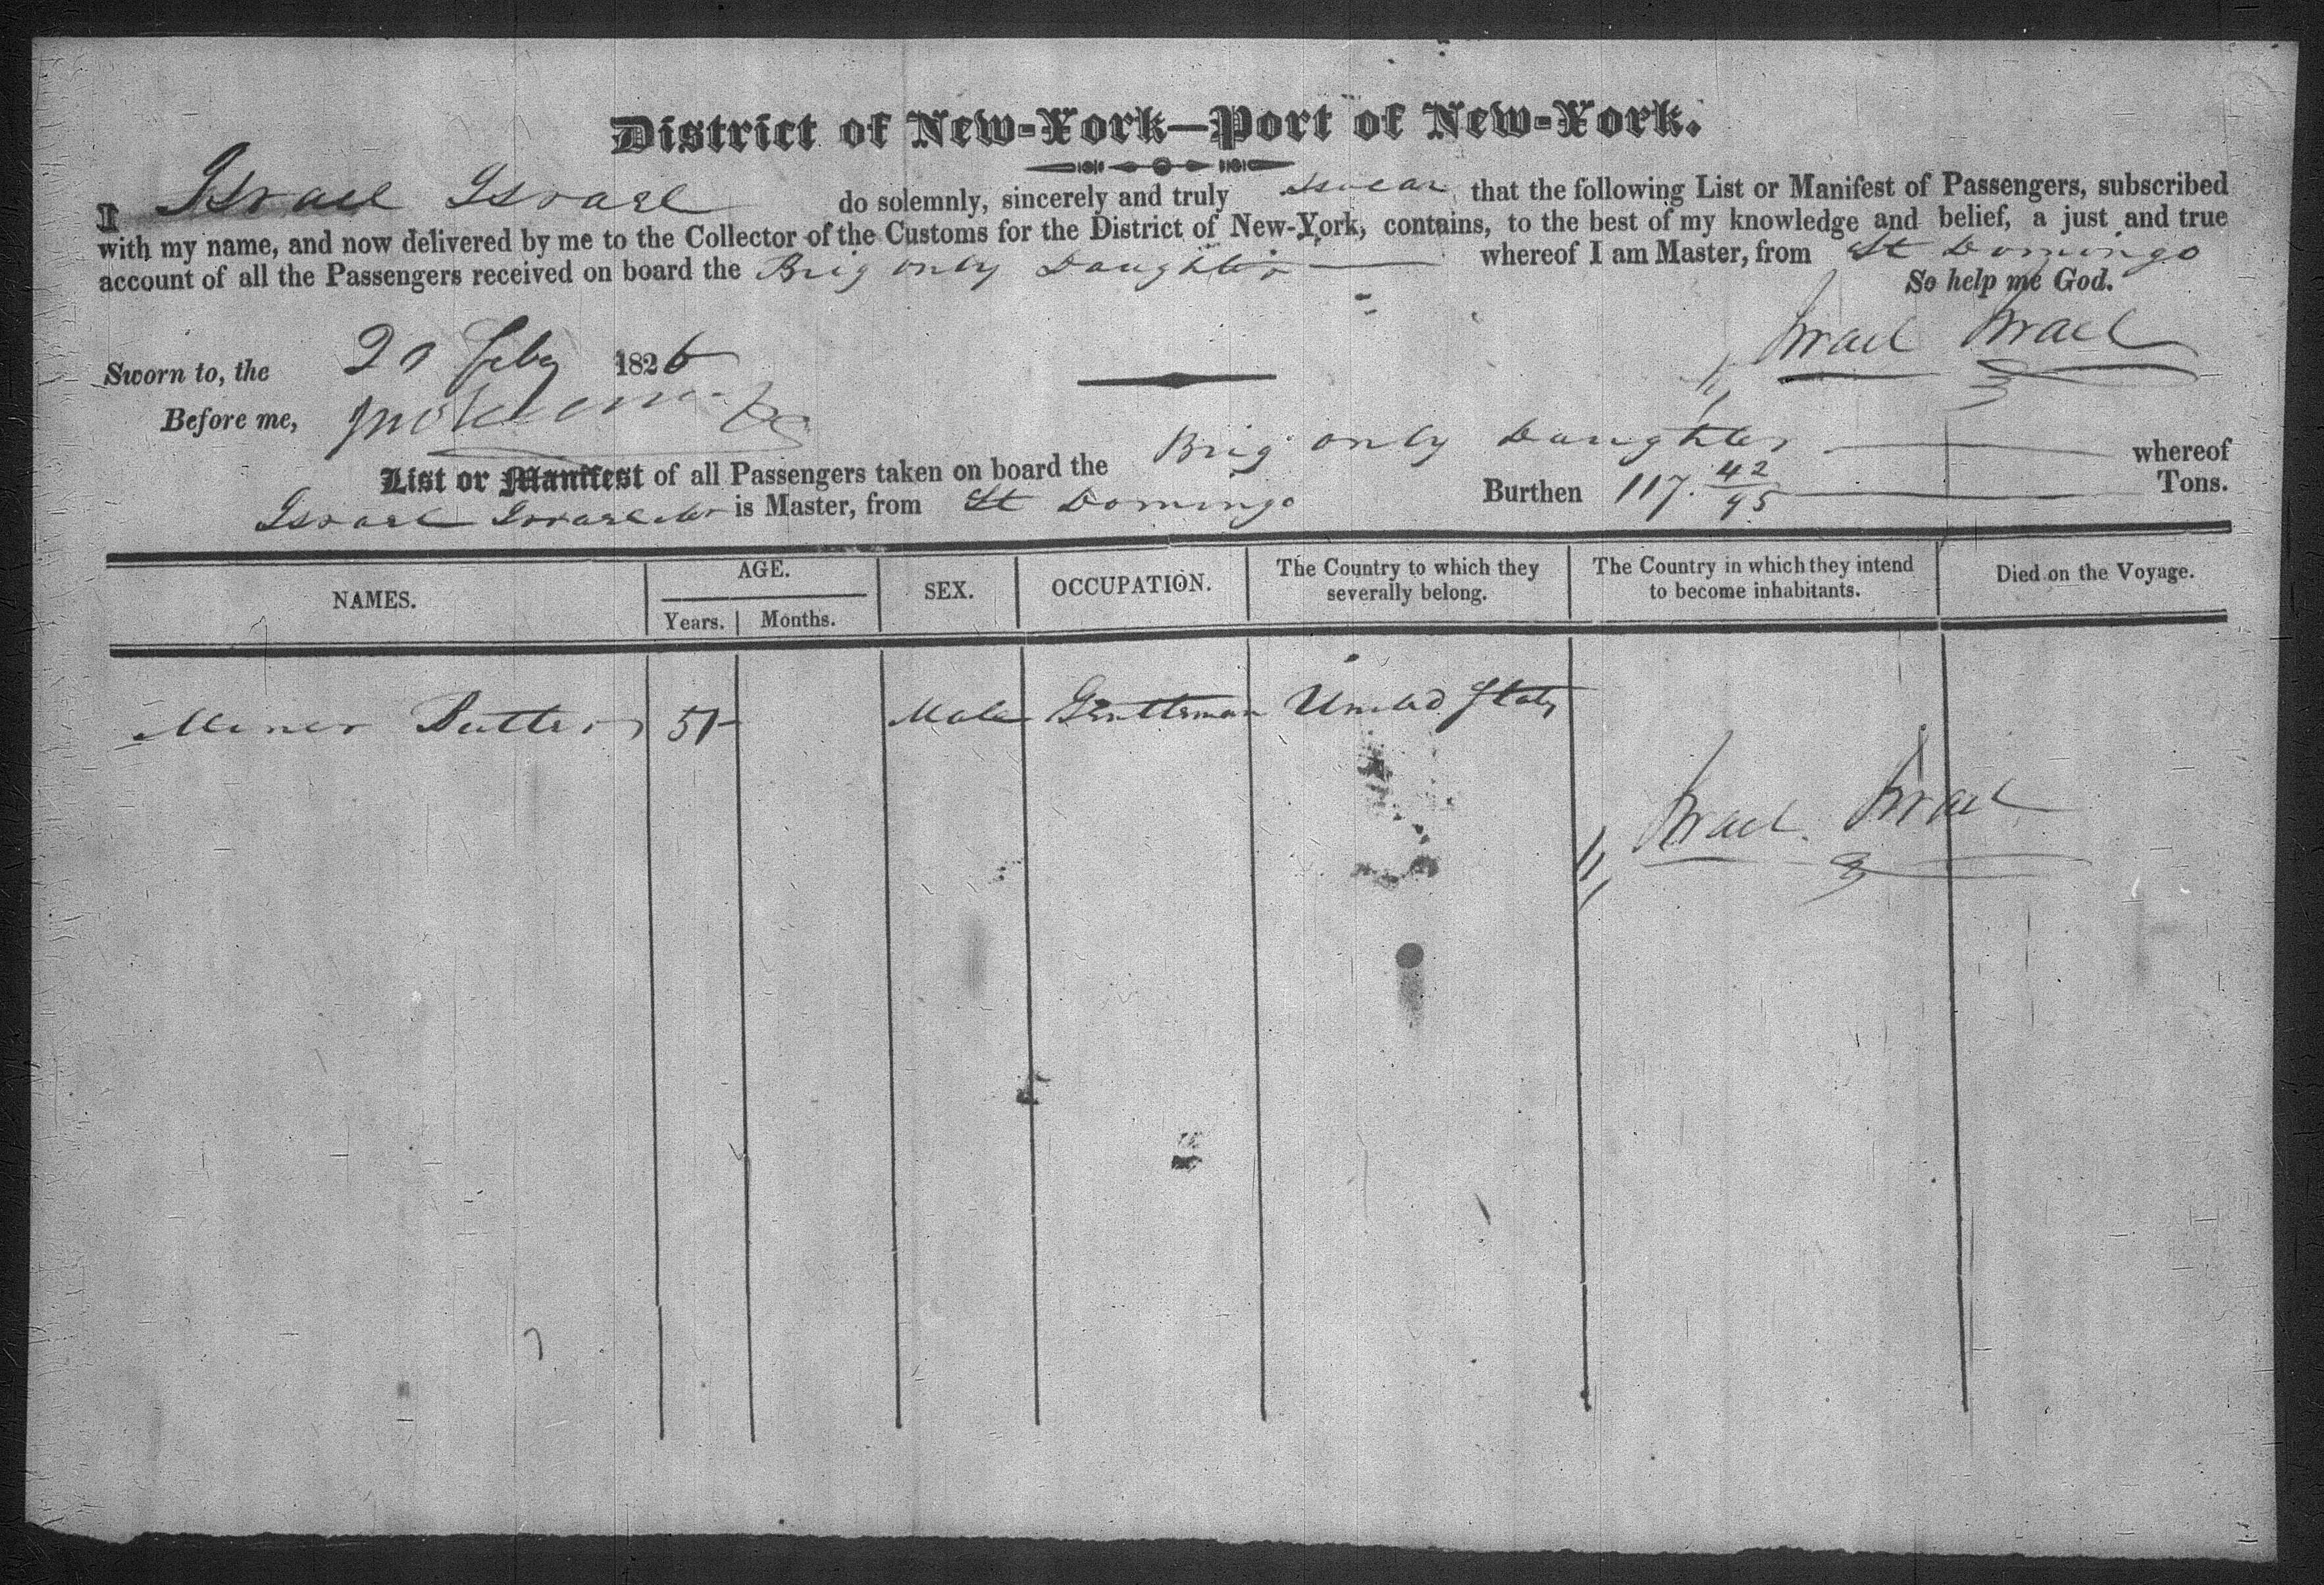 District of New-York—Port of New-York.
I Israel Israel do solemnly, sincerely and truly swear that the following List or Manifest of Passengers, subscribed
with my name, and now delivered by me to the Collector of the Customs for the District of New-York, contains, to the best of my knowledge and belief, a just and true
account of all the Passengers received on board the Brig only Daughter whereof I am Master, from St Domingo
So help me God.
Sworn to, the 20 Feby 1826
Israel Israel
Before me,
List or Manifest of all Passengers taken on board the Brig only Daughter whereof
Israel Israel is Master, from St Domingo Burthen 117. 42/95 Tons.
NAMES. AGE. SEX. OCCUPATION. The Country to which they severally belong. The Country in which they intend to become inhabitants. Died on the Voyage.
Years. Months.
Miner Butler 51 Male Gentleman United States
Israel Israel